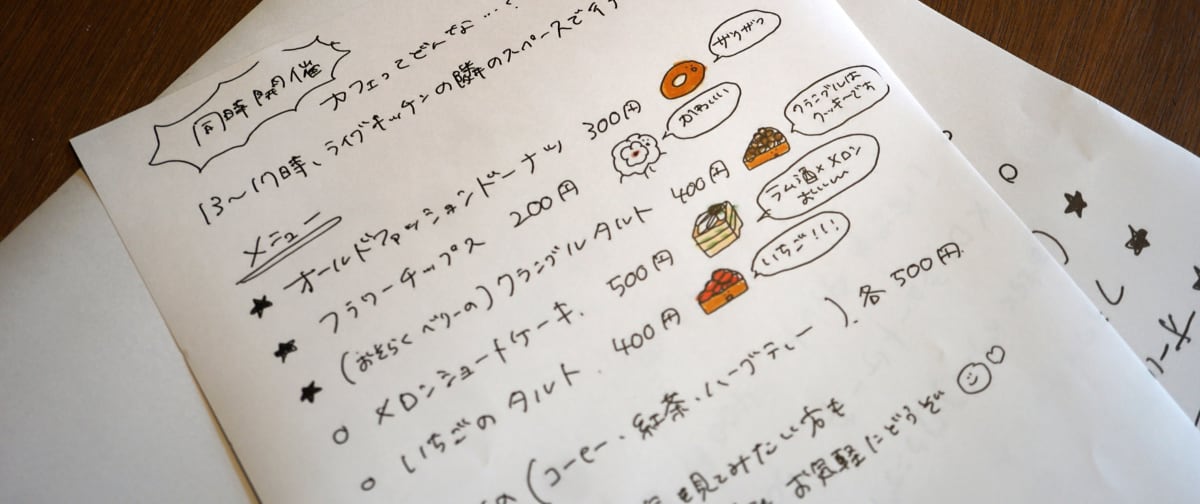 同時開催
カフェってどんなよ…?
13~17時、ライブキッチンの隣のスペースで
メニュー
★ オールドファッションドーナツ 300円
ザクザク
★ フラワーチップス 200円
かわいい
★ (おそらくベリーの)クランブルタルト 400円
クランブルは
クッキーです
○ メロンショートケーキ. 500円
ラム酒×メロン
おいしい
○ いちごのタルト. 400円
いちご!!!
の(コーヒー・紅茶・ハーブティー). 各500円.
を見てみたい方も
お気軽にどうぞ